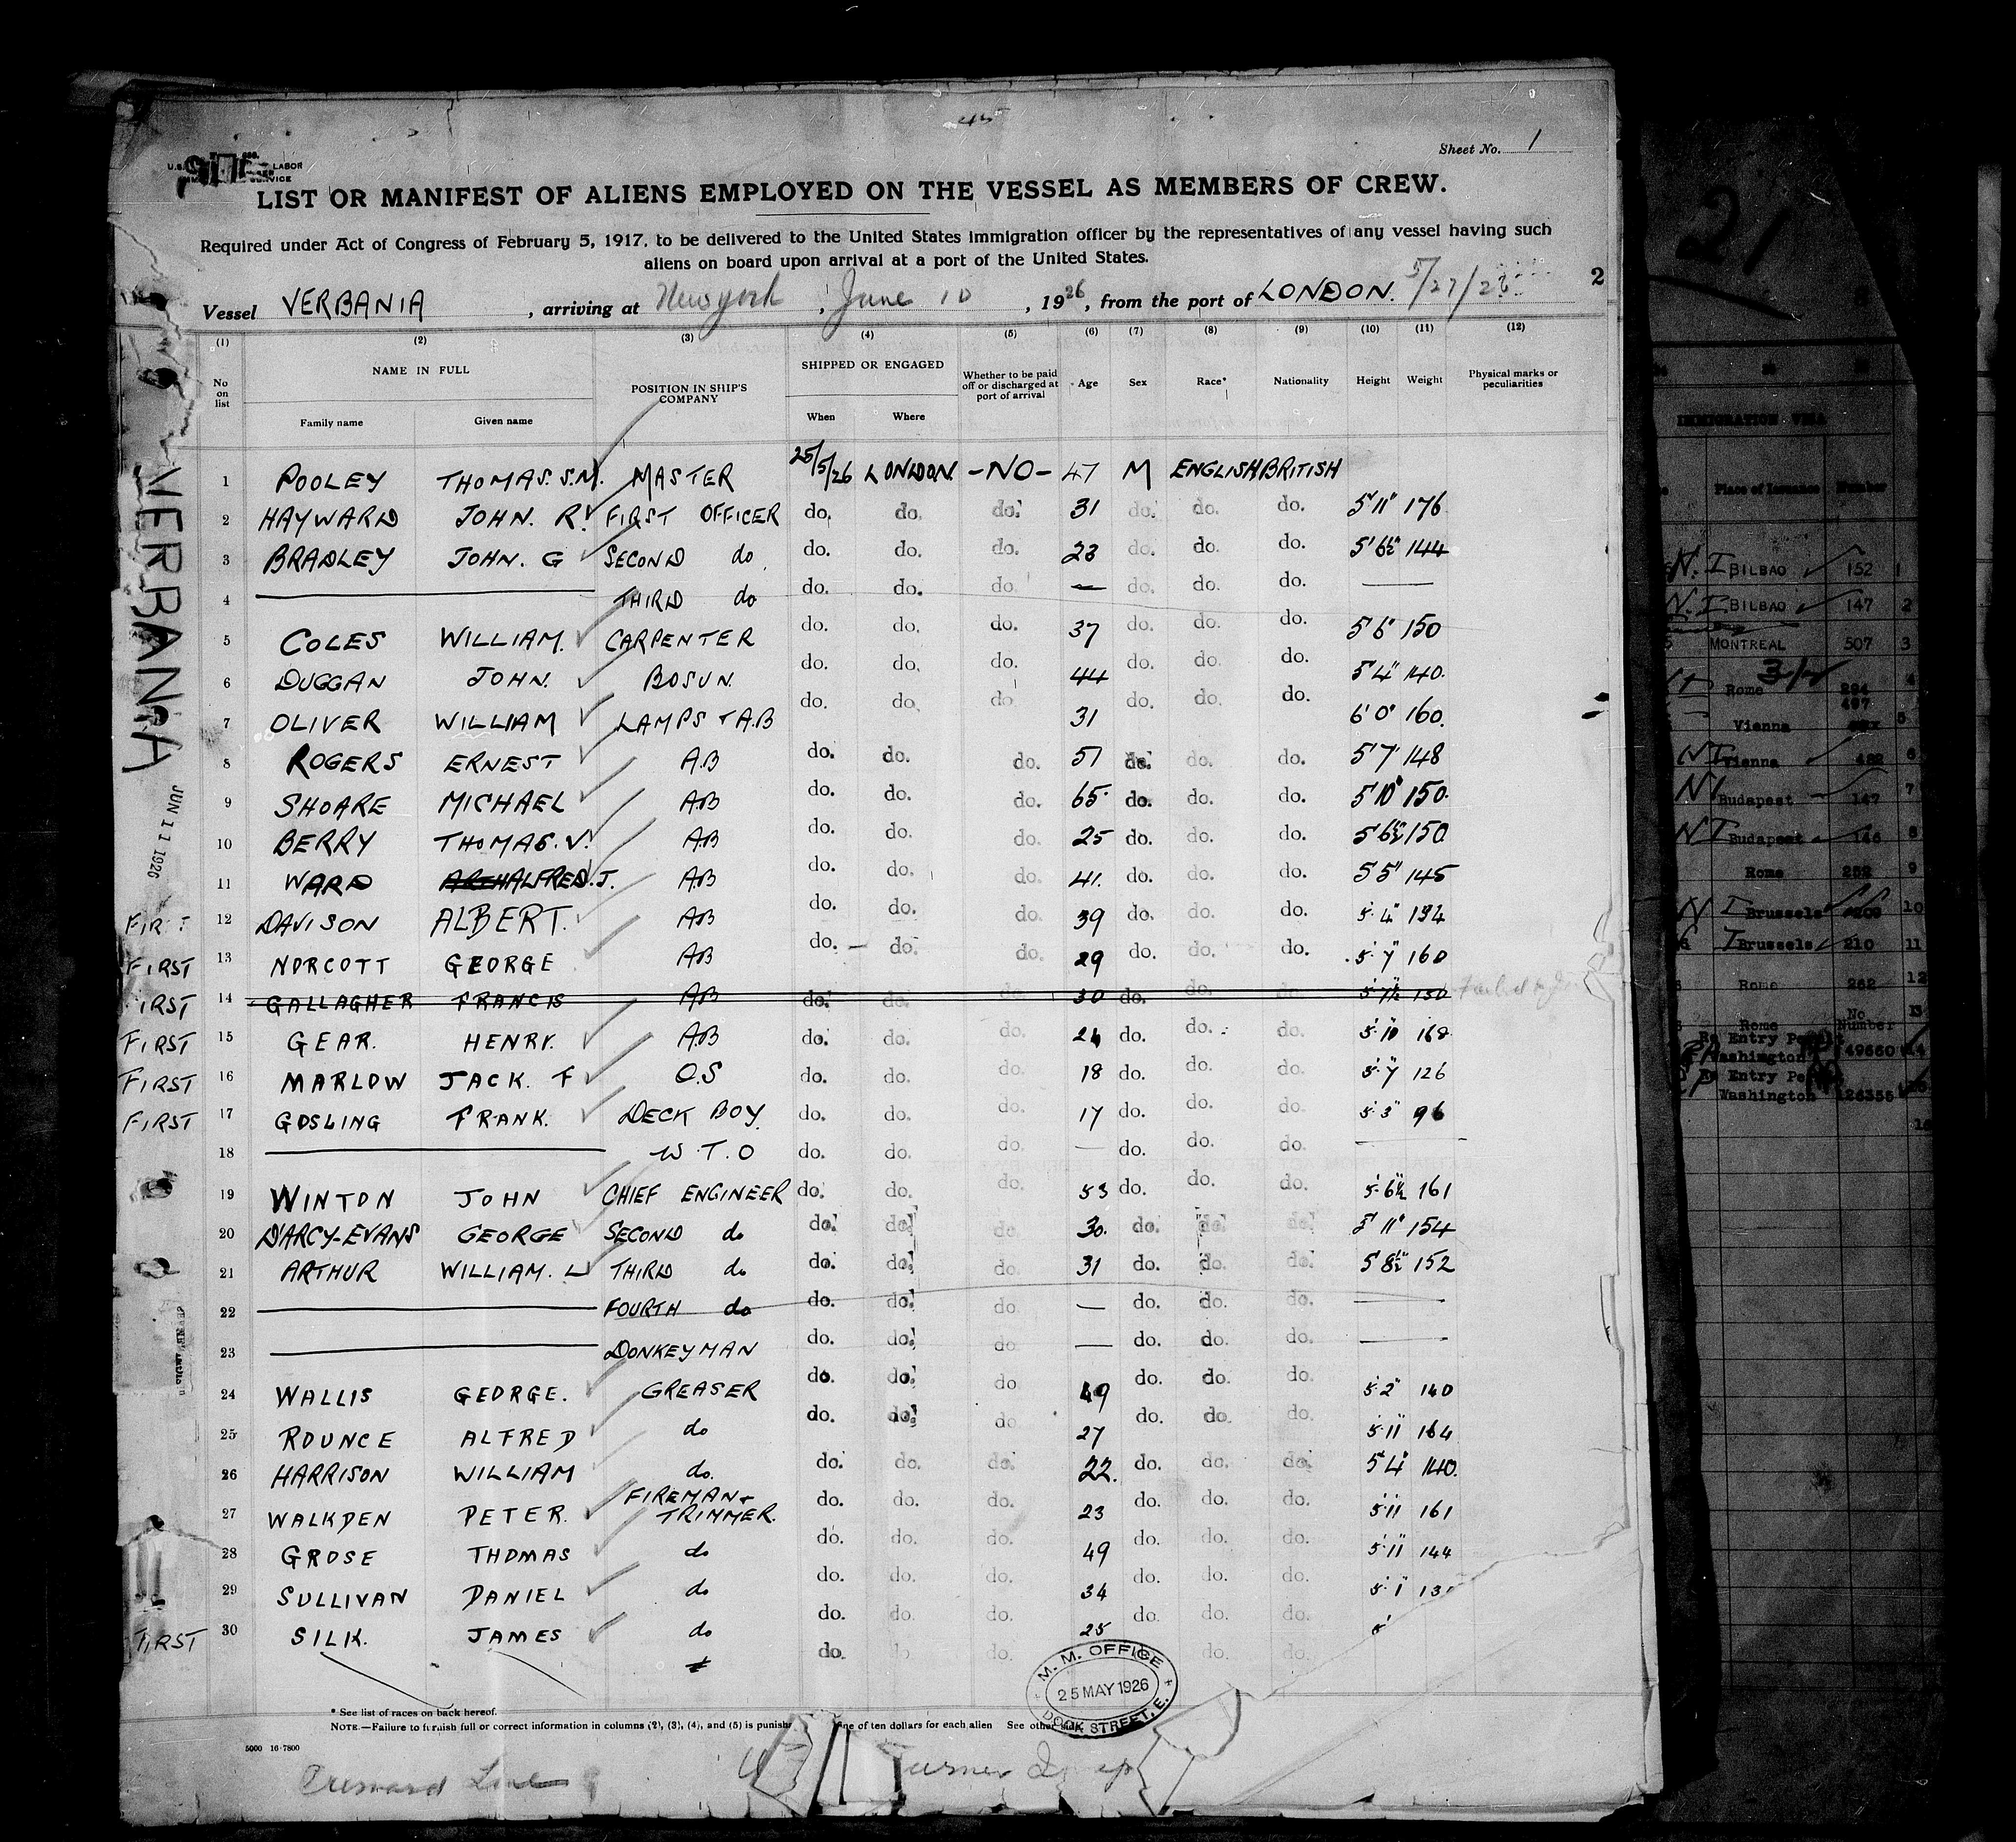 45
Sheet No. 1
LABOR
SERVICE
LIST OR MANIFEST OF ALIENS EMPLOYED ON THE VESSEL AS MEMBERS OF CREW.
Required under Act of Congress of February 5, 1917, to be delivered to the United States immigration officer by the representatives of any vessel having such
aliens on board upon arrival at a port of the United States.
2
Vessel VERBANIA, arriving at New York, June 10, 1926, from the port of LONDON. 5/27/26
(1) (2) (3) (4) (5) (6) (7) (8) (9) (10) (11) (12)
No on list NAME IN FULL Family name Given name POSITION IN SHIP'S COMPANY SHIPPED OR ENGAGED When Where Whether to be paid off or discharged at port of arrival Age Sex Race* Nationality Height Weight Physical marks or peculiarities
1 POOLEY THOMAS. S.M. MASTER 25/5/26 LONDON. -NO- 47 M ENGLISH BRITISH
2 HAYWARD JOHN. R. FIRST OFFICER do. do. do. 31 do. do. do. 5'11" 176
3 BRADLEY JOHN. G SECOND do do. do. do. 23 do. do. do. 5'6½" 144
4 — THIRD do do. do. do. — do. do. do. —
5 COLES WILLIAM. CARPENTER do. do. do. 37 do. do. do. 5'6" 150
6 DUGGAN JOHN. BOSUN. do. do. do. 44 do. do. do. 5'4" 140.
7 OLIVER WILLIAM LAMPS & A.B do. do. do. 31 do. do. do. 6'0" 160.
8 ROGERS ERNEST A.B do. do. do. 51 do. do. do. 5'7" 148
9 SHOARE MICHAEL A.B do. do. do. 65 do. do. do. 5'10" 150.
10 BERRY THOMAS. V. A.B do. do. do. 25 do. do. do. 5'6½" 150
11 WARD ALFRED. J. A.B do. do. do. 41. do. do. do. 5'5" 145
FIRST 12 DAVISON ALBERT. A.B do. do. do. 39 do. do. do. 5'4" 134
FIRST 13 NORCOTT GEORGE A.B do. do. do. 29 do. do. do. 5'7" 160
FIRST 14 GALLAGHER FRANCIS A.B do. do. do. 30 do. do. do. 5'7½" 150 Failed to
FIRST 15 GEAR. HENRY. A.B do. do. do. 24 do. do. do. 5'10" 168
FIRST 16 MARLOW JACK. F O.S do. do. do. 18 do. do. do. 5'7" 126
FIRST 17 GOSLING FRANK. DECK BOY. do. do. do. 17 do. do. do. 5'3" 96
18 — W.T.O do. do. do. — do. do. do. —
19 WINTON JOHN CHIEF ENGINEER do. do. do. 53 do. do. do. 5'6½" 161
20 D'ARCY-EVANS GEORGE SECOND do do. do. do. 30. do. do. do. 5'11" 154
21 ARTHUR WILLIAM. L THIRD do do. do. do. 31 do. do. do. 5'8½" 152
22 — FOURTH do do. do. do. — do. do. do. —
23 — DONKEYMAN do. do. do. — do. do. do. —
24 WALLIS GEORGE. GREASER do. do. do. 49 do. do. do. 5'2" 140
25 ROUNCE ALFRED do do. do. do. 27 do. do. do. 5'11" 164
26 HARRISON WILLIAM do. do. do. do. 22. do. do. do. 5'4" 140.
27 WALKDEN PETER. FIREMAN & TRIMMER. do. do. do. 23 do. do. do. 5'11" 161
28 GROSE THOMAS do do. do. do. 49 do. do. do. 5'11" 144
29 SULLIVAN DANIEL do do. do. do. 34 do. do. do. 5'1"
FIRST 30 SILK. JAMES do do. do. do. 25 do. do. do. 5'
do. do. do. do. do.
VERBANIA
JUN 11 1926
M. M. OFFICE
25 MAY 1926
DOCK STREET, E.
* See list of races on back hereof.
NOTE.—Failure to furnish full or correct information in columns (2), (3), (4), and (5) is punish ne of ten dollars for each alien See other side
5000 16-7800
Line
21
IMMIGRATION VISA
Place of Issuance Number
N.I BILBAO 152 1
N.I BILBAO 147 2
MONTREAL 507 3
Rome 4
Vienna 5
NI Vienna 6
NI Budapest 147 7
NI Budapest 146 8
Rome 252 9
NI Brussels 10
I Brussels 210 11
Rome 262 12
Rome No Number 13
Re Entry Permit
Washington 49660 14
Re Entry
Washington 126355